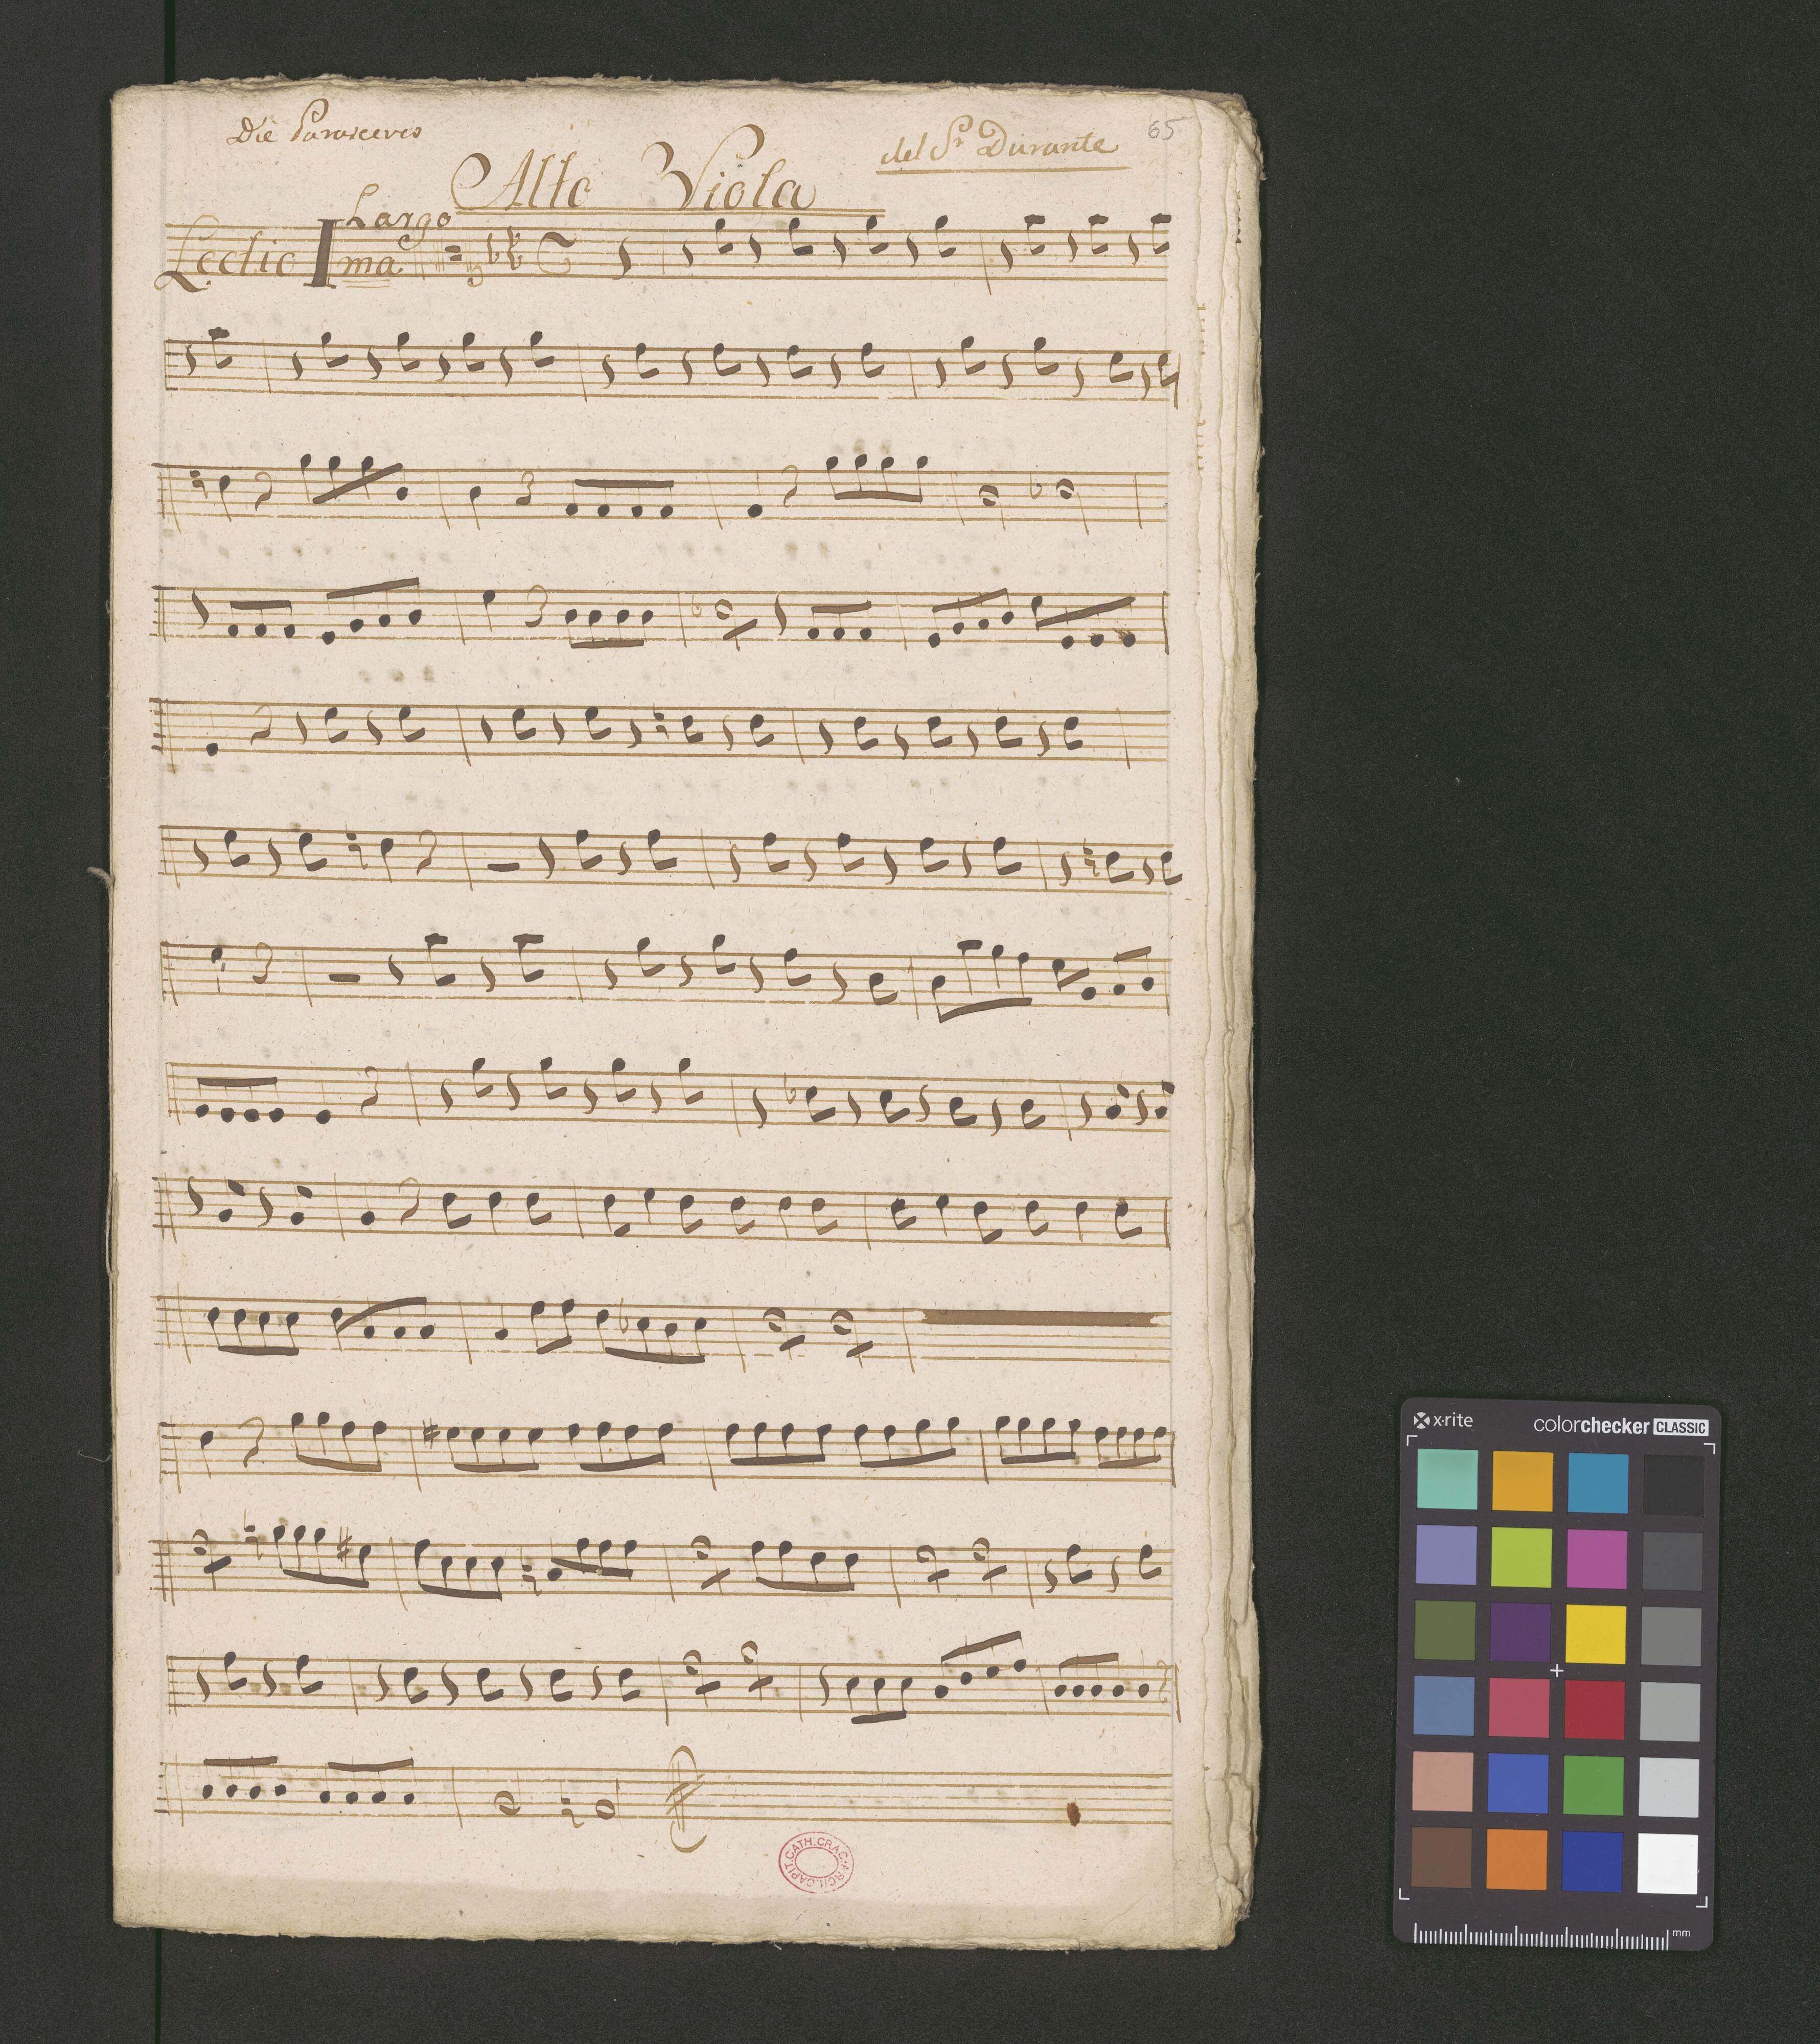 Die Parasceves
del Sr Durante
65
Alto Viola
Largo
Lectio Ima
CAPIT.CATH.CRAC. ARCH.
x-rite colorchecker CLASSIC
mm